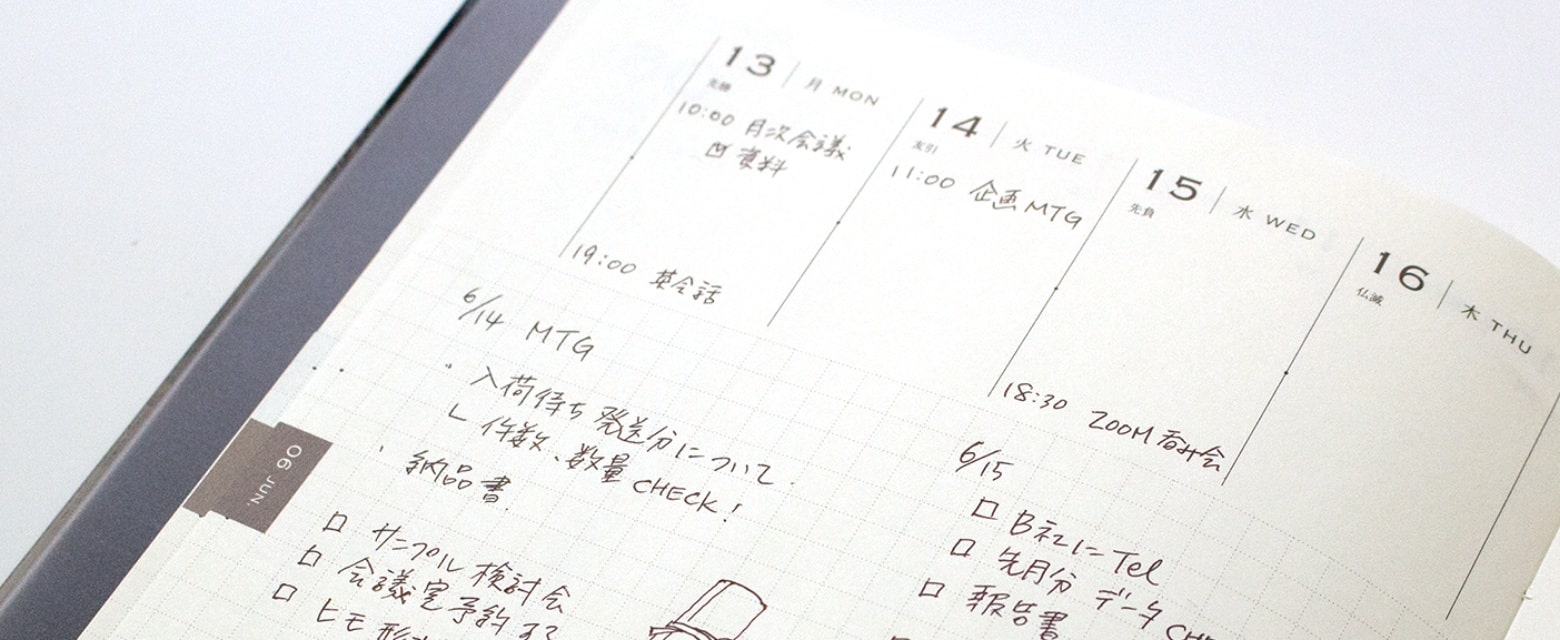 13 月 MON
先勝
10:00 月次会議
☑ 資料
19:00 英会話
14 火 TUE
友引
11:00 企画MTG
15 水 WED
先負
18:30 ZOOM 呑み会
16 木 THU
仏滅
06 JUN.
6/14 MTG
・入荷待ち発送分について.
└ 件数、数量 CHECK!
・納品書.
□ サンプル検討会
□ 会議室予約する
□ ヒモ
6/15
□ B社に Tel
□ 先月分 データ
□ 報告書